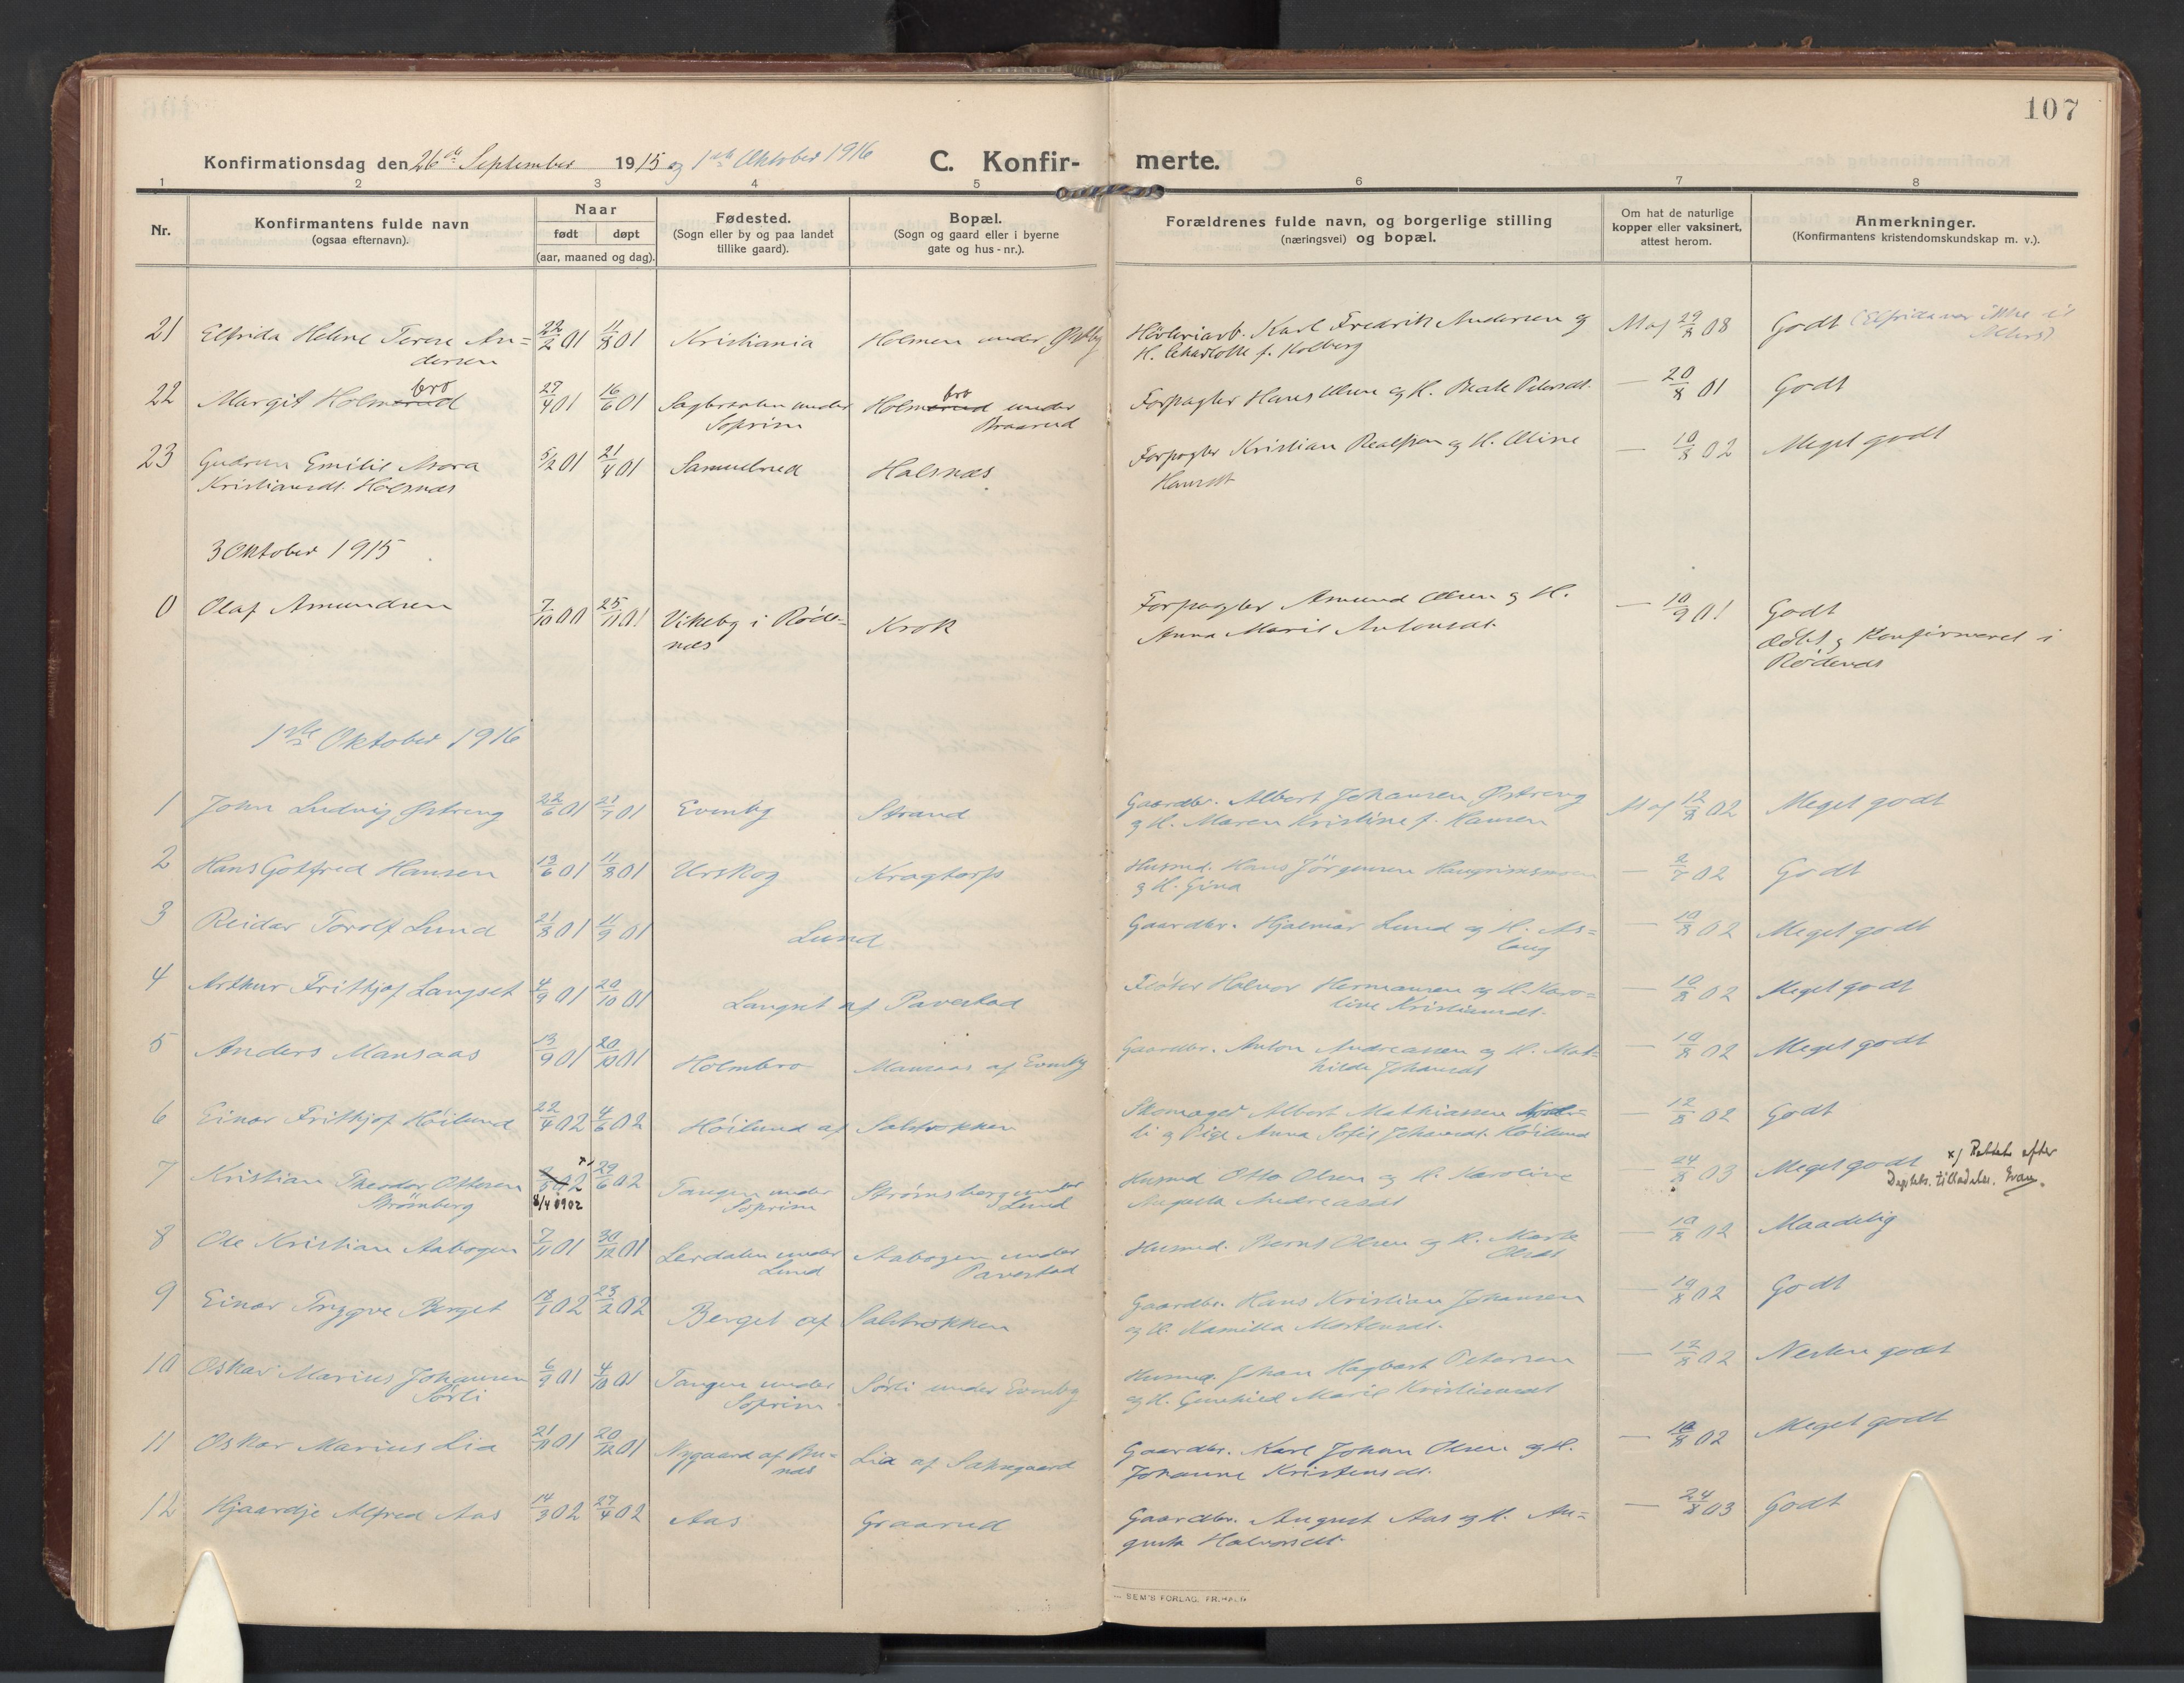 107
Konfirmationsdag den 26de September 1915 og 1ste Oktober 1916 C. Konfir- merte.
1 2 3 4 5 6 7 8
Nr.
Konfirmantens fulde navn
(ogsaa efternavn).
Naar
født døpt
(aar, maaned og dag).
Fødested.
(Sogn eller by og paa landet
tillike gaard).
Bopæl.
(Sogn og gaard eller i byerne
gate og hus-nr.).
Forældrenes fulde navn, og borgerlige stilling
(næringsvei) og bopæl.
Om hat de naturlige
kopper eller vaksinert,
attest herom.
Anmerkninger.
(Konfirmantens kristendomskundskap m. v.).
21 Elfrida Helene Terese An= 22/2 01 11/8 01 Kristiania Holmen under Østby Høvleriarb. Karl Fredrik Andersen og 29/8 08 Godt (Elfrida var ikke i
dersen H. Charlotte f. Kolberg
22 Margit Holmerud bro 27/4 01 16/6 01 under Holmerud bro under Forpagter Hans Olsen og H. Beate Petersdt. — 20/8 01 Godt
Soprim Braarud
23 Gudrun Emilie Asora 5/2 01 21/4 01 Samuelrud Halsnæs Forpagter Kristian og H. Oline — 10/8 02 Meget godt
Kristiansdt. Holsnæs Hansdt
3 Oktober 1915
0 Olaf Amundsen 7/10 00 25/11 01 Vikeby i Røde= Krok Forpagter Amund Olsen og H. — 10/9 01 Godt
næs Anna Marie Antonsdt.
og Konfirmeret i
Rødenæs
1ste Oktober 1916
1 John Ludvig Østreng 22/6 01 21/7 01 Evenby Strand Gaardbr. Albert Johansen Østreng 12/8 02 Meget godt
og H. Maren Kristine f. Hansen
2 Hans Gotfred Hansen 13/6 01 11/8 01 Urskog Kragtorp Husmd. Hans Jörgensen Hangrimsmoen — 2/7 02 Godt
og H. Gina
3 Reidar Torolf Lund 21/8 01 11/9 01 Lund Gaardbr. Hjalmar Lund og H. As= — 10/8 02 Meget godt
laug
4 Arthur Frithjof Langset 4/9 01 20/10 01 Langset af Pavestad Fløter Halvor Hermansen og H. Karo= — 10/8 02 Meget godt
line Kristiansdt.
5 Anders Mansaas 13/9 01 20/10 01 Holmbro Mansaas af Evenby Gaardbr. Anton Andreassen og H. Mat= — 10/8 02 Meget godt
hilde Johansdt
6 Einar Frithjof Höilund 22/4 02 4/6 02 Höilund af Salstrokken Skomager Albert Mathiassen — 12/8 02 Godt
li og Pige Anna Sofie Johansdt. Höilund
7 Kristian Theodor Ottesen 02 x) 29/6 02 Tangen under Strømsberg under Husmd Otto Olsen og H. Karoline — 24/8 03 Meget godt x) Rettet efter
Strømberg 8/4 1902 Soprim Lund Augusta Andreasdt Dept.s. tilladelse. Evan.
8 Ole Kristian Aabogen 7/11 01 30/12 01 Lerdalen under Aabogen under Husmd. Bernt Olsen og H. Marte — 10/8 02 Maadelig
Lund Pavestad Olsdt
9 Einar Trygve Berget 18/1 02 23/2 02 Berget af Salstrokken Gaardbr. Hans Kristian Johansen — 10/8 02 Godt
og H. Kamilla Martensdt.
10 Oskar Marius Johansen 6/9 01 4/10 01 Tangen under Sørli under Evenby Husmd. Johan Hagbart Petersen — 12/8 02 Nesten godt
Sørli Soprim. og H. Gunhild Marie Kristiansdt
11 Oskar Marius Lia 21/11 01 20/12 01 Nygaard af Bu= Lia af Gaardbr. Karl Johan Olsen og H. — 10/8 02 Meget godt
næs Johanne Kristensdt.
12 Hjaardje Alfred Aas 14/3 02 27/4 02 Aas Graarud Gaardbr. August Aas og H. Au= — 24/8 03 Godt
gusta Halvorsdt.
— SEM'S FORLAG, FR.HALD